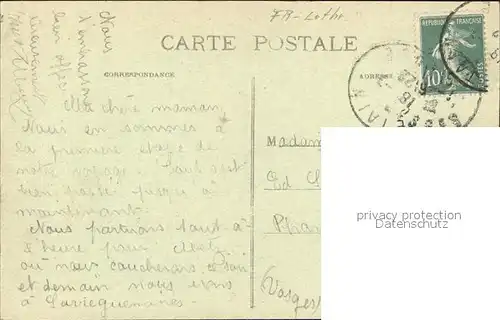 FR-Lothr.
CARTE POSTALE
CORRESPONDANCE
ADRESSE
REPUBLIQUE FRANÇAISE
10c
Ma chère maman,
Nous en sommes à
la première étape de
notre voyage. Tout s'est
bien passé jusque à
maintenant.
Nous partirons tout à
l'heure pour
où nous coucherons ce soir
et demain nous irons
à
Nous
t'embrassons
bien affec
tueusement
Madam
Ed
Pha
(Vosges)
ETAIN
privacy protection
Datenschutz